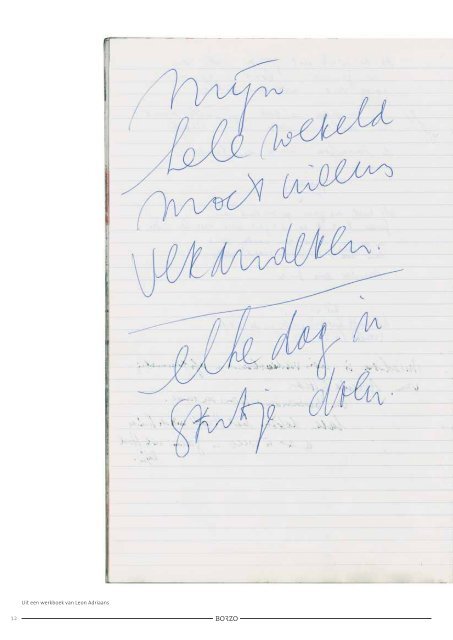 mijn
hele wereld
moet ineens
veranderen.
elke dag 'n
stukje doen.
Uit een werkboek van Leon Adriaans
12 BORZO